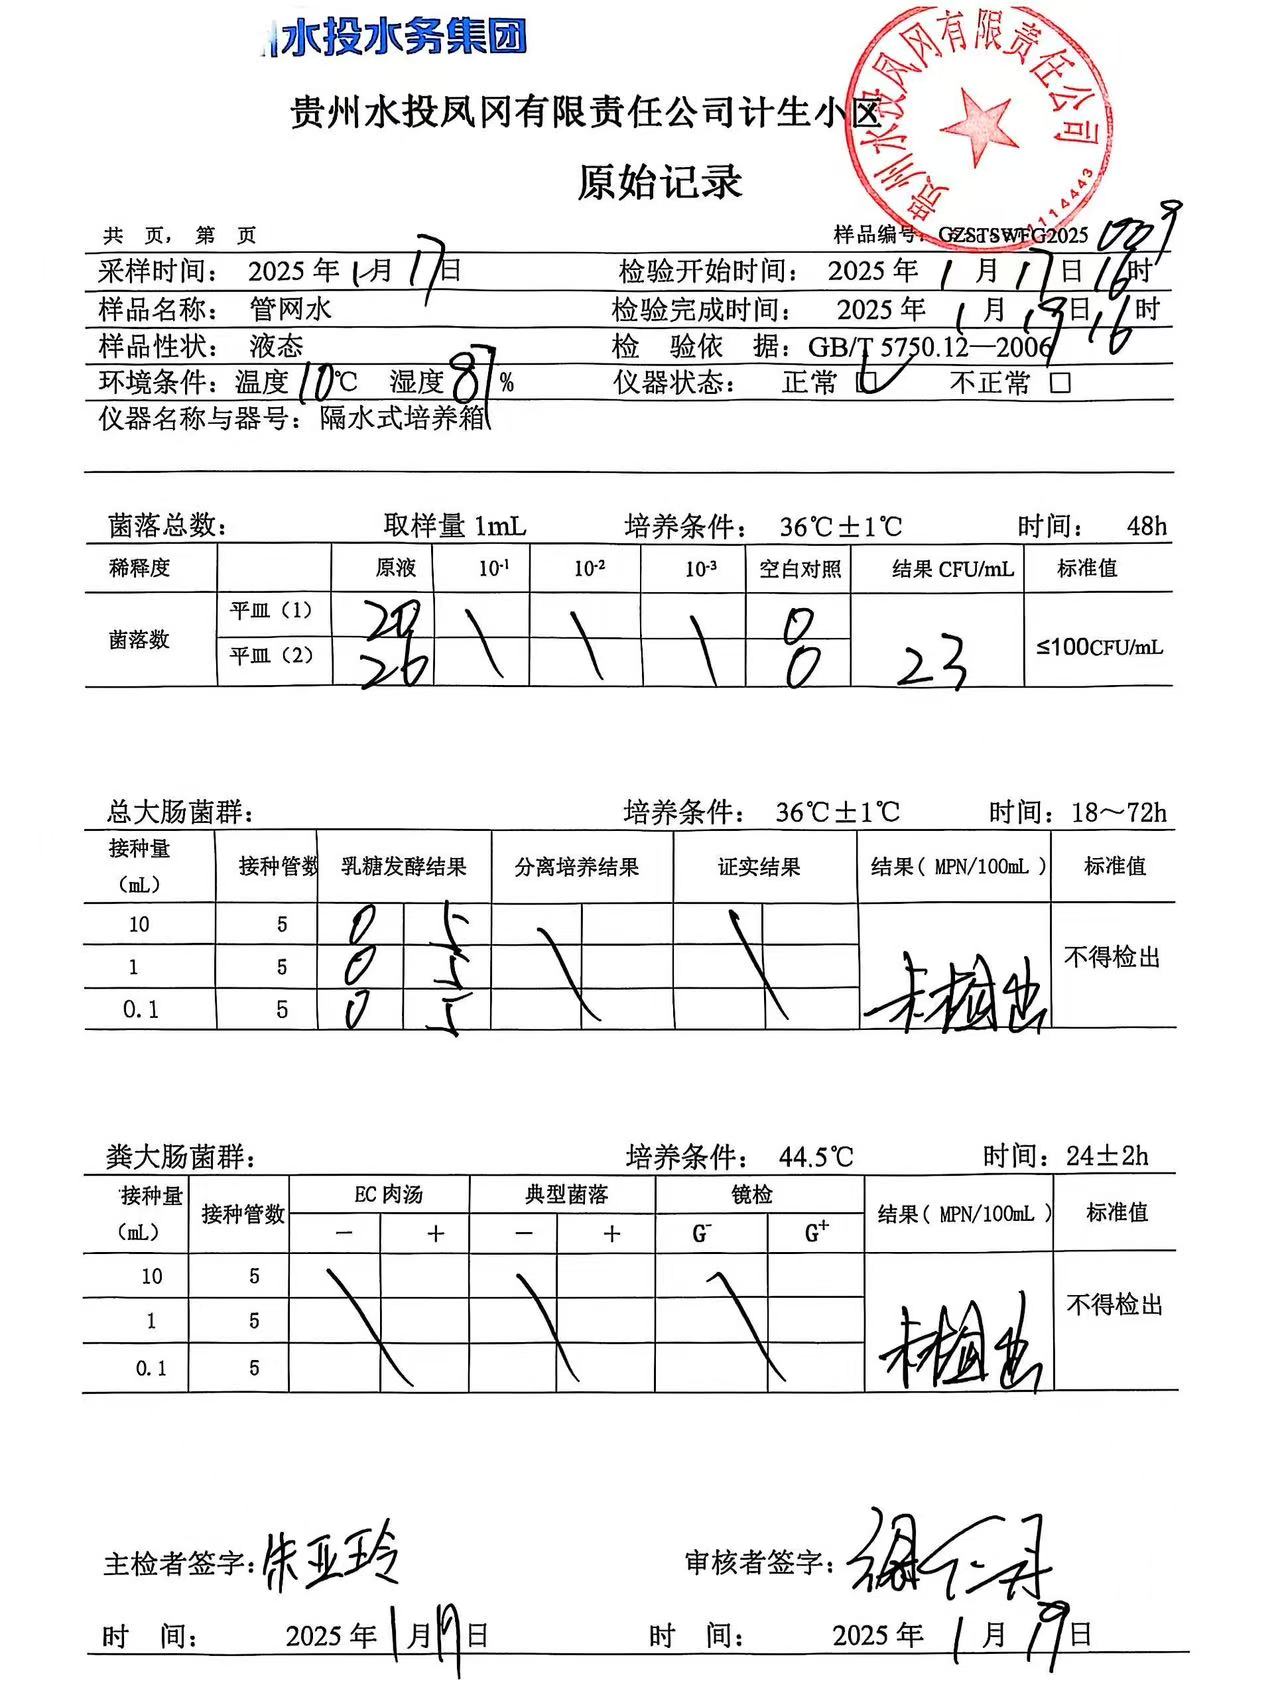 水投水务集团
贵州水投凤冈有限责任公司计生小区
原始记录
贵州水投凤冈有限责任公司
共 页，第 页 样品编号：GZSTSWFG2025 0009
采样时间： 2025 年 1 月 17 日 检验开始时间： 2025 年 1 月 17 日 16 时
样品名称： 管网水 检验完成时间： 2025 年 1 月 19 日 16 时
样品性状： 液态 检 验依 据：GB/T 5750.12—2006
环境条件：温度 10 ℃ 湿度 87 % 仪器状态： 正常 ☑ 不正常 □
仪器名称与器号：隔水式培养箱
菌落总数： 取样量 1mL 培养条件： 36℃±1℃ 时间： 48h
稀释度 原液 10-1 10-2 10-3 空白对照 结果 CFU/mL 标准值
菌落数 平皿（1） 20 \ \ \ 0 23 ≤100CFU/mL
平皿（2） 26 0
总大肠菌群： 培养条件： 36℃±1℃ 时间：18～72h
接种量（mL） 接种管数 乳糖发酵结果 分离培养结果 证实结果 结果（ MPN/100mL ） 标准值
10 5 0 5 \ \ 未检出 不得检出
1 5 0 5
0.1 5 0 5
粪大肠菌群： 培养条件： 44.5℃ 时间：24±2h
接种量（mL） 接种管数 EC 肉汤 典型菌落 镜检 结果（ MPN/100mL ） 标准值
－ ＋ － ＋ G- G+
10 5 \ \ \ 未检出 不得检出
1 5
0.1 5
主检者签字：朱亚玲 审核者签字：
时 间： 2025 年 1 月 19 日 时 间： 2025 年 1 月 19 日